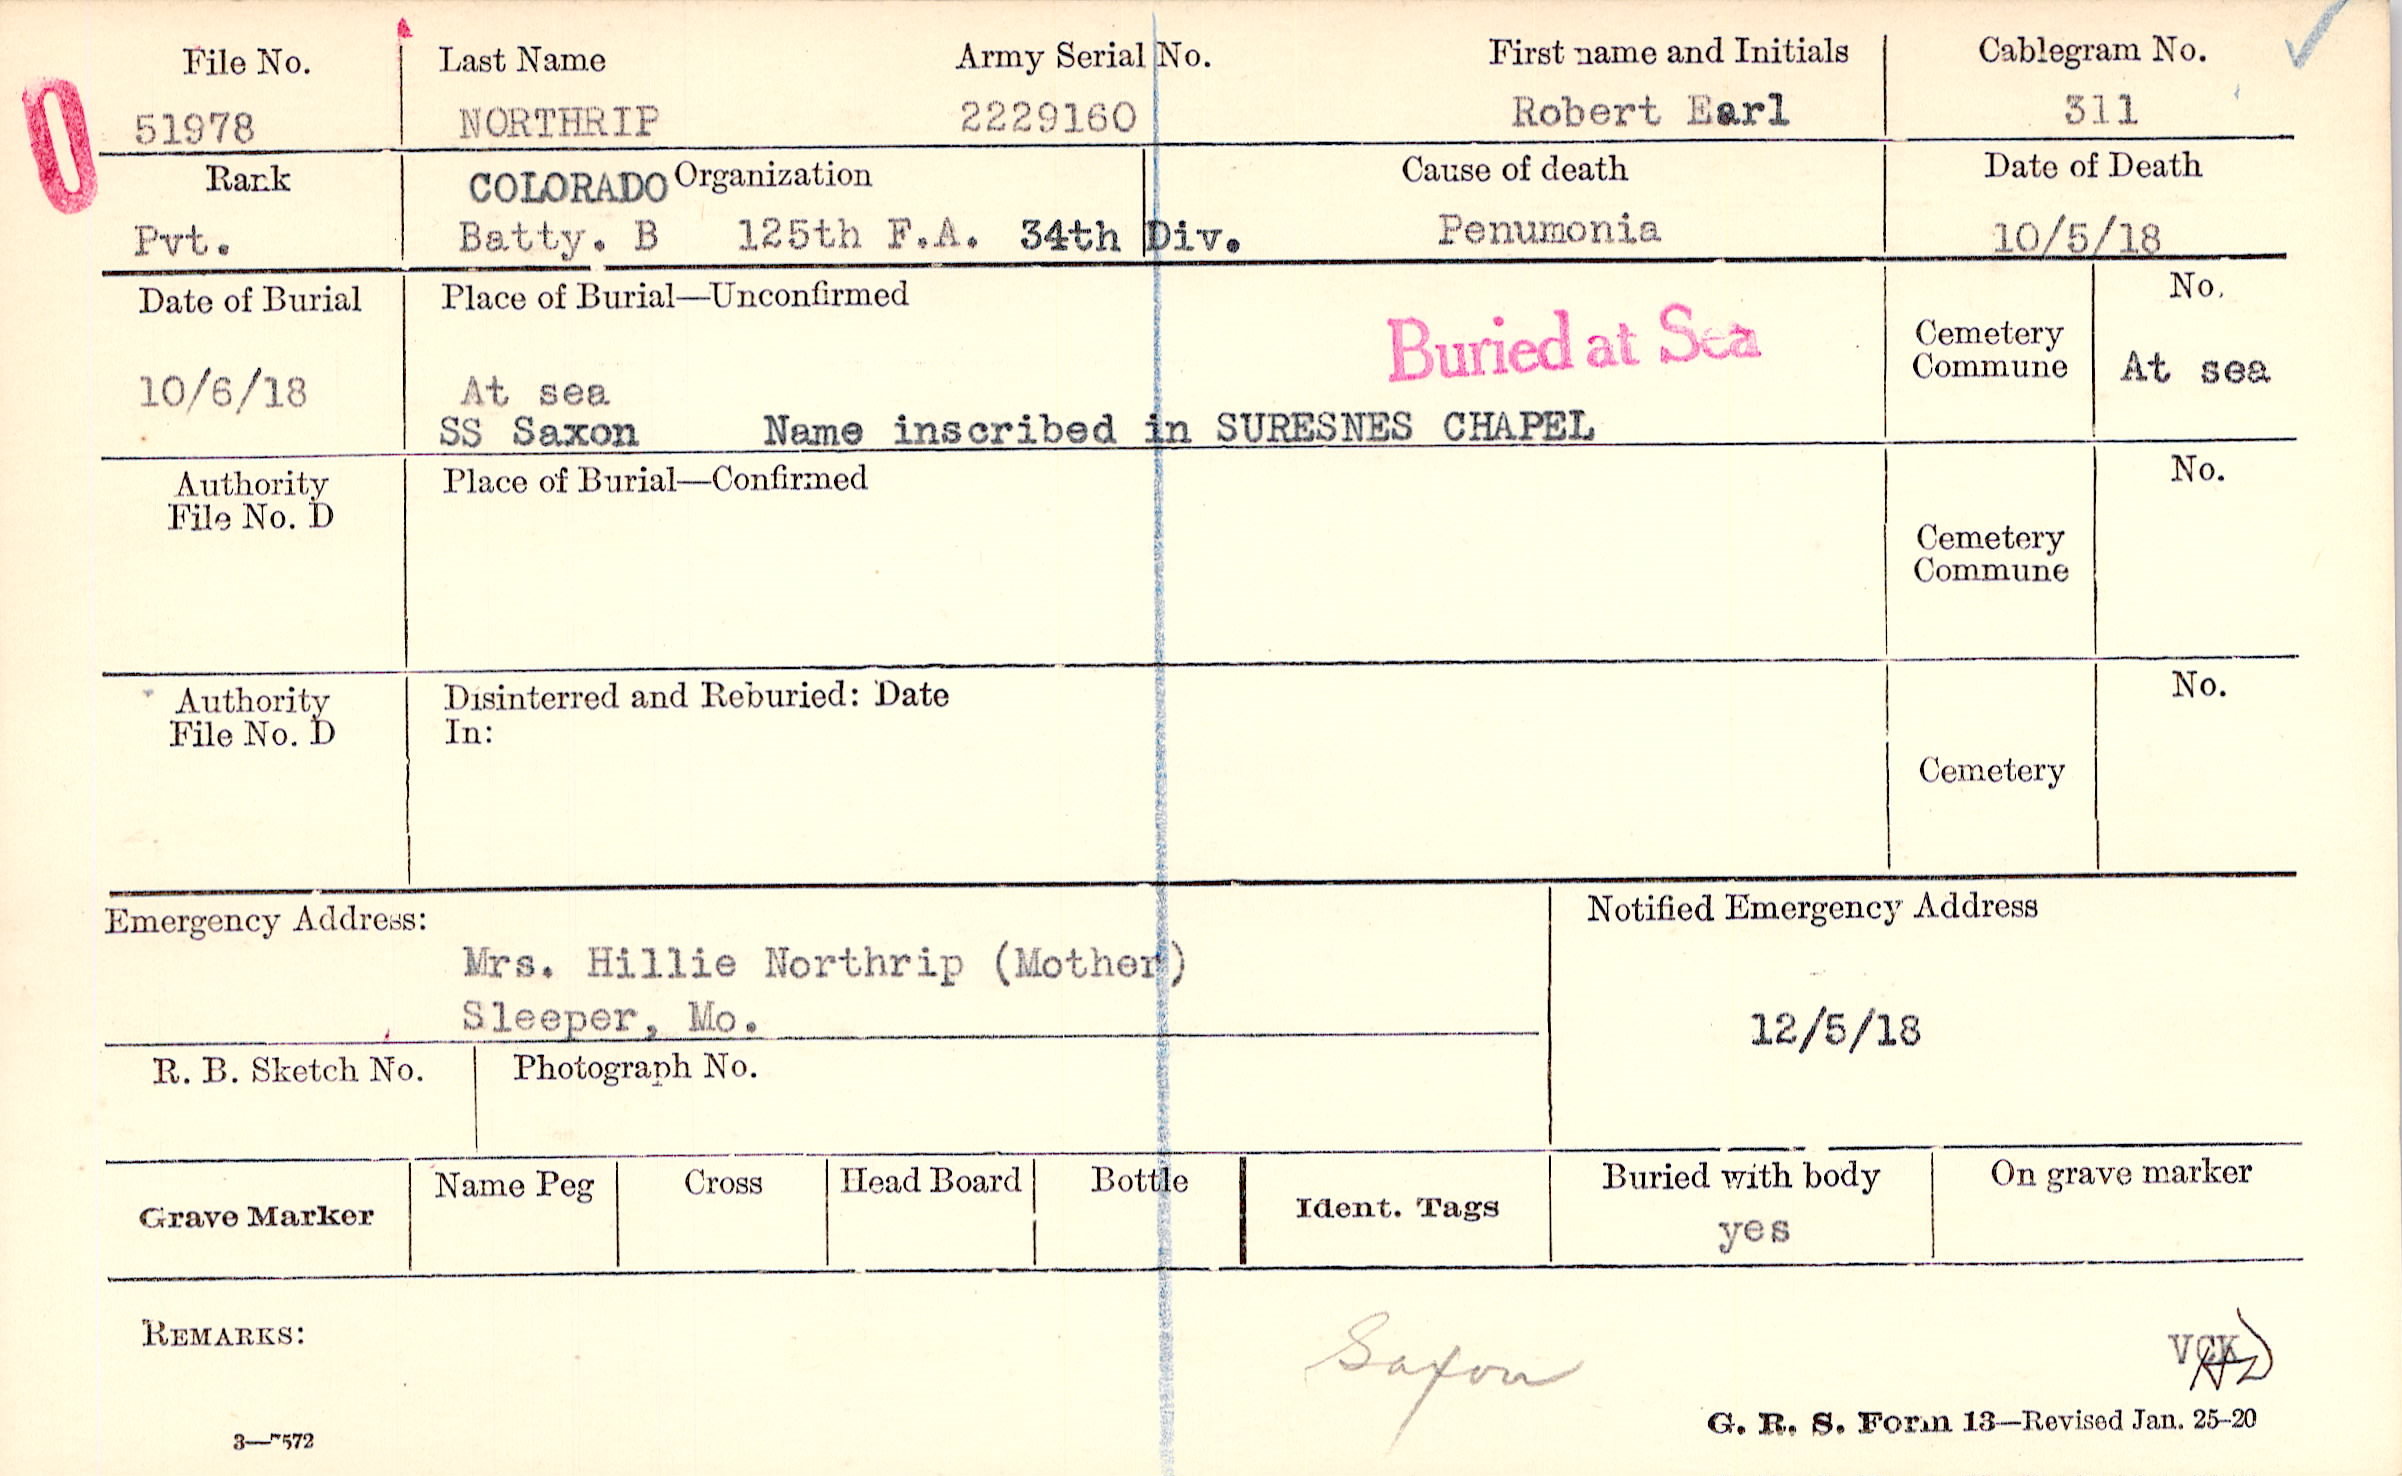 File No. Last Name Army Serial No. First name and Initials Cablegram No.
51978 NORTHRIP 2229160 Robert Earl 311
Rank COLORADO Organization Cause of death Date of Death
Pvt. Batty. B 125th F.A. 34th Div. Penumonia 10/5/18
Date of Burial Place of Burial—Unconfirmed No.
Buried at Sea
Cemetery
Commune
At sea
10/6/18 At sea
SS Saxon Name inscribed in SURESNES CHAPEL
Authority Place of Burial—Confirmed No.
File No. D
Cemetery
Commune
Authority Disinterred and Reburied: Date No.
File No. D In:
Cemetery
Emergency Address: Notified Emergency Address
Mrs. Hillie Northrip (Mother)
Sleeper, Mo. 12/5/18
R. B. Sketch No. Photograph No.
Grave Marker Name Peg Cross Head Board Bottle Ident. Tags Buried with body On grave marker
yes
REMARKS: Saxon VCK
G. R. S. Form 13—Revised Jan. 25-20